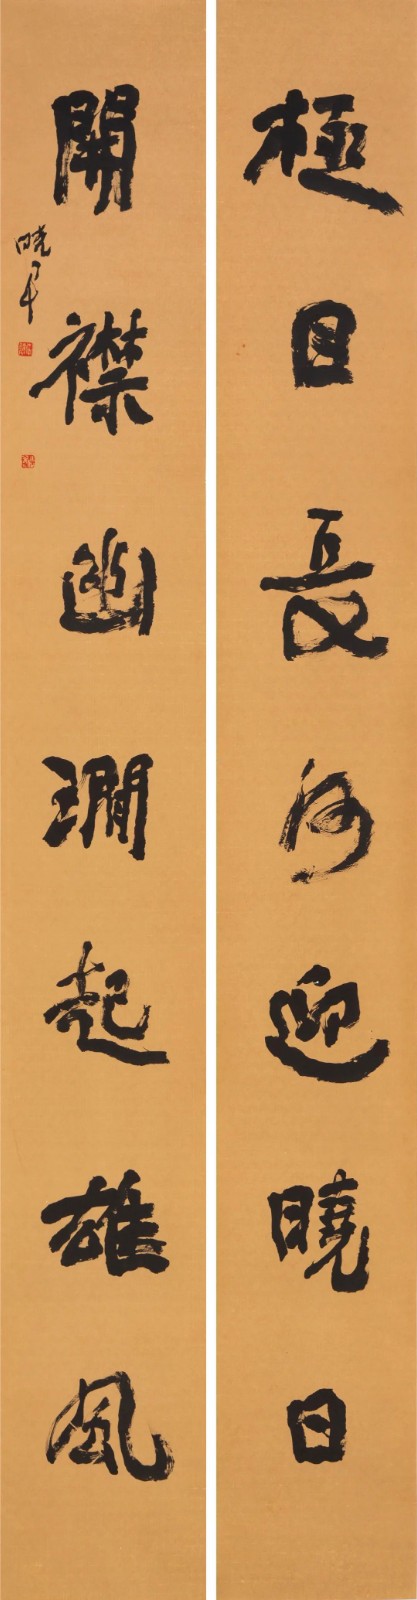 極目長河迎曉日
開襟幽澗起雄風
曉軍